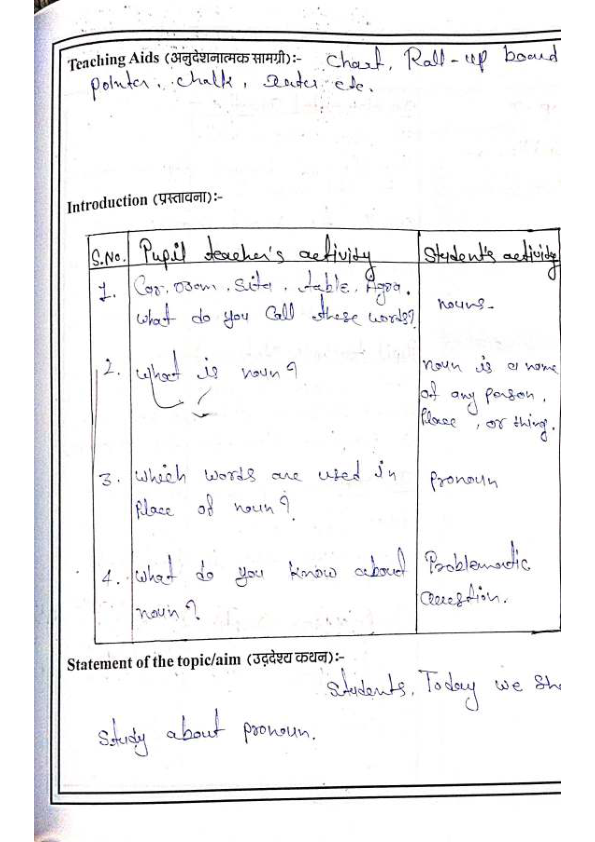 Teaching Aids (अनुदेशनात्मक सामग्री):- Chart, Roll-up board
pointer, chalk, duster etc.
Introduction (प्रस्तावना):-
S.No. Pupil teacher's activity Student's activity
1. Car, Sita, table, Agra.
What do you Call these words?
nouns-
2. What is noun?
noun is a name
of any person,
Place, or thing.
3. Which words are used in
Place of noun?
Pronoun
4. What do you know about
noun?
Problematic
Question.
Statement of the topic/aim (उद्देश्य कथन):-
Students, Today we
study about pronoun.